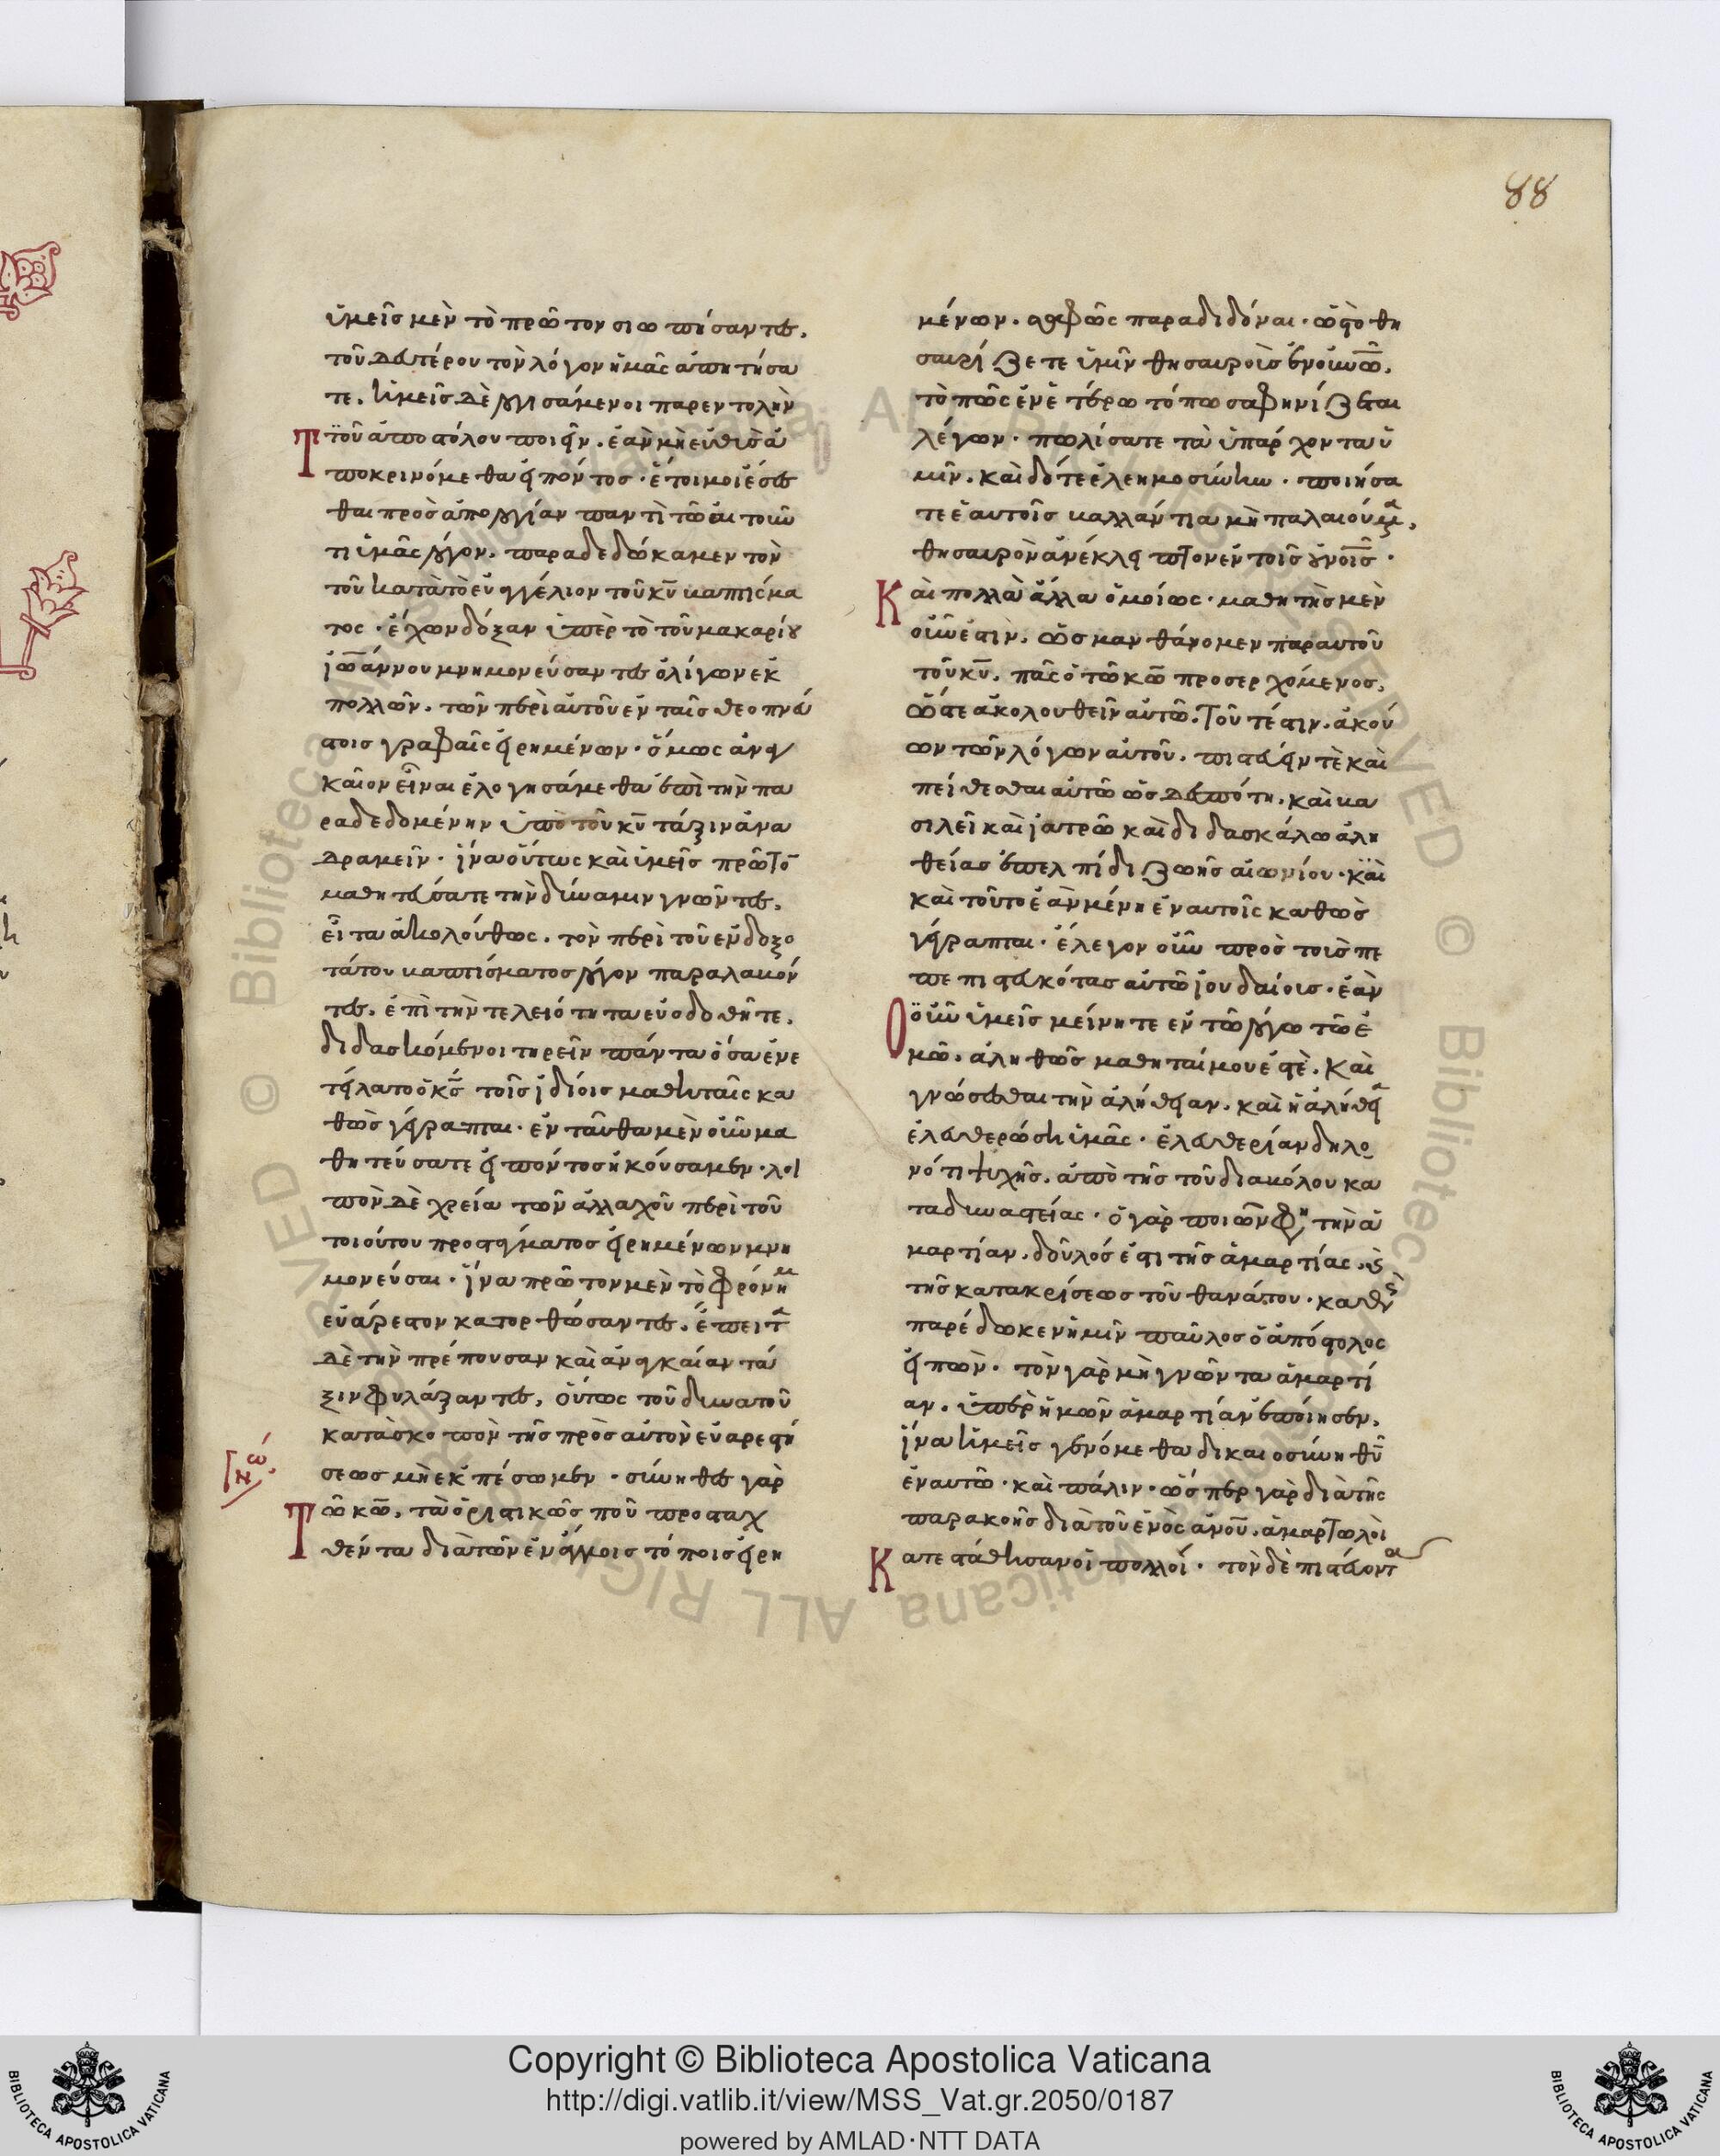 88
ὑμεῖσ μὲν τὸ πρῶτον σιωπήσαντες,
τοῦ δευτέρου τὸν λόγον ἡμᾶς ἀπητήσα
τε. ἡμεῖσ δὲ λογισάμενοι παρεντολὴν
τοῦ ἀποστόλου ποιεῖν. ἐὰν μὴ εὐθὺσ ἀ
ποκρινόμεθα εἰπόντοσ · ἕτοιμοι ἔσες
θαι πρὸσ ἀπολογίαν παντὶ τῶ αἰτοῦν
τι ὑμᾶς λόγον. παραδεδώκαμεν τὸν
τοῦ κατὰ τὸ εὐαγγέλιον τοῦ κυ βαπτίσμα
τος · ἔχων δόξαν ὑπὲρ τὸ τοῦ μακαρίου
ἰωάννου μνημονεύσαντες ὀλίγων ἐκ
πολλῶν. τῶν περὶ αὐτοῦ ἐν ταῖσ θεοπνεύ
στοισ γραφαῖς εἰρημένων · ὅμως ἀναγ
καῖον εἶναι ἐλογησάμεθα ἐπὶ τὴν πα
ραδεδομένην ὑπὸ τοῦ κυ τάξιν ἀνα
δραμεῖν · ἵνα οὕτως καὶ ὑμεῖσ πρῶτο
μαθητεύσατε τὴν δύναμιν γνῶντες.
εἶτα ἀκολούθως. τὸν περὶ τοῦ ἐνδοξο
τάτου βαπτίσματοσ λόγον παραλαβόν
τες. ἐπὶ τὴν τελειότητα εὐοδωθῆτε.
διδασκόμενοι τηρεῖν πάντα ὅσα ἐνε
τείλατο ὁ κς τοῖσ ἰδίοισ μαθηταῖς κα
θὼσ γέγραπται · ἐνταῦθα μὲν οὖν μα
θητεύσατε εἰπόντοσ ἠκούσαμεν · λοι
πὸν δὲ χρεία τῶν ἀλλαχοῦ περὶ τοῦ
τοιούτου προστάγματοσ εἰρημένων μνη
μονεῦσαι · ἵνα πρῶτον μὲν τὸ φρόνημ
εὐάρεστον κατορθώσαντες. ἔπειτα
δὲ τὴν πρέπουσαν καὶ ἀναγκαίαν τά
ξιν φυλάξαντες. οὕτως τοῦ δυνατοῦ
κατὰ σκοπὸν τῆσ πρὸσ αὐτὸν εὐαρεστή
σεωσ μὴ ἐκπέσωμεν · σύνηθες γὰρ
τῶ κω. τὰ ὁριστικῶσ που προσταχ
θέντα διὰ τῶν ἐν ἄλλοισ τόποισ εἰρη
μένων. σαφῶς παραδιδόναι · ὡς τὸ θη
σαυρίζετε ὑμῖν θησαυροὺσ ἐν οὐνω.
τὸ πῶς ἐν ἑτέρω τόπω σαφηνίζεται
λέγων · πωλήσατε τὰ ὑπάρχοντα ὑ
μῖν. καὶ δότε ἐλεημοσύνην · ποιήσα
τε ἑαυτοῖσ βαλλάντια μὴ παλαιούμενα.
θησαυρὸν ἀνέκλειπτον ἐν τοῖσ οὐνοῖσ ·
καὶ πολλὰ ἄλλα ὁμοίως · μαθητὴσ μὲν
οὖν ἐστὶν. ὡσ μανθάνομεν παρ αυτοῦ
τοῦ κυ. πᾶς ὁ τῶ κω προσερχόμενοσ.
ὥστε ἀκολουθεῖν αὐτῶ. τουτέστιν. ἀκού
ων τῶν λόγων αὐτοῦ. πιστεύειν τὲ καὶ
πείθεσθαι αὐτῶ ὡσ δεσπότη. καὶ βα
σιλεῖ καὶ ἰατρῶ καὶ διδασκάλω ἀλη
θείασ ἐπελπίδι ζωῆσ αἰωνίου · καὶ
καὶ τοῦτο ἐὰν μένη ἐν αυτοῖς καθὼσ
γέγραπται · ἔλεγον οὖν πρὸσ τοὺσ πε
πεπιστευκότασ αὐτῶ ἰουδαίοισ · ἐὰν
οὖν ὑμεῖσ μείνητε ἐν τῶ λόγω τῶ ἐ
μῶ. ἀληθῶσ μαθηταί μου ἐστὲ. καὶ
γνώσεσθαι τὴν ἀλήθειαν. καὶ ἡ ἀλήθεια
ἐλευθερώσει ὑμᾶς · ἐλευθερίαν δηλο
νότι ψυχῆσ. ἀπὸ τῆσ τοῦ διαβόλου κα
ταδυναστείας · ὁ γὰρ ποιῶν φη τὴν ἁ
μαρτίαν. δοῦλόσ ἐστι τῆσ ἁμαρτίας. καὶ
τῆσ κατακρίσεωσ τοῦ θανάτου · καθὼς
παρέδωκεν ἡμῖν παῦλοσ ὁ ἀπόστολος
εἰπὼν · τὸν γὰρ μὴ γνῶντα ἁμαρτί
αν. ὑπὲρ ἡμῶν ἁμαρτίαν ἐποίησεν.
ἵνα ἡμεῖσ γενόμεθα δικαιοσύνη θυ
ἐν αυτῶ · καὶ πάλιν · ὥσπερ γὰρ διὰ τῆς
παρακοῆσ διὰ τοῦ ἑνὸς ἀνου. ἁμαρτωλοὶ
κατεστάθησαν οἱ πολλοί · τὸν δὲ πιστεύοντα
Copyright © Biblioteca Apostolica Vaticana
http://digi.vatlib.it/view/MSS_Vat.gr.2050/0187
powered by AMLAD·NTT DATA